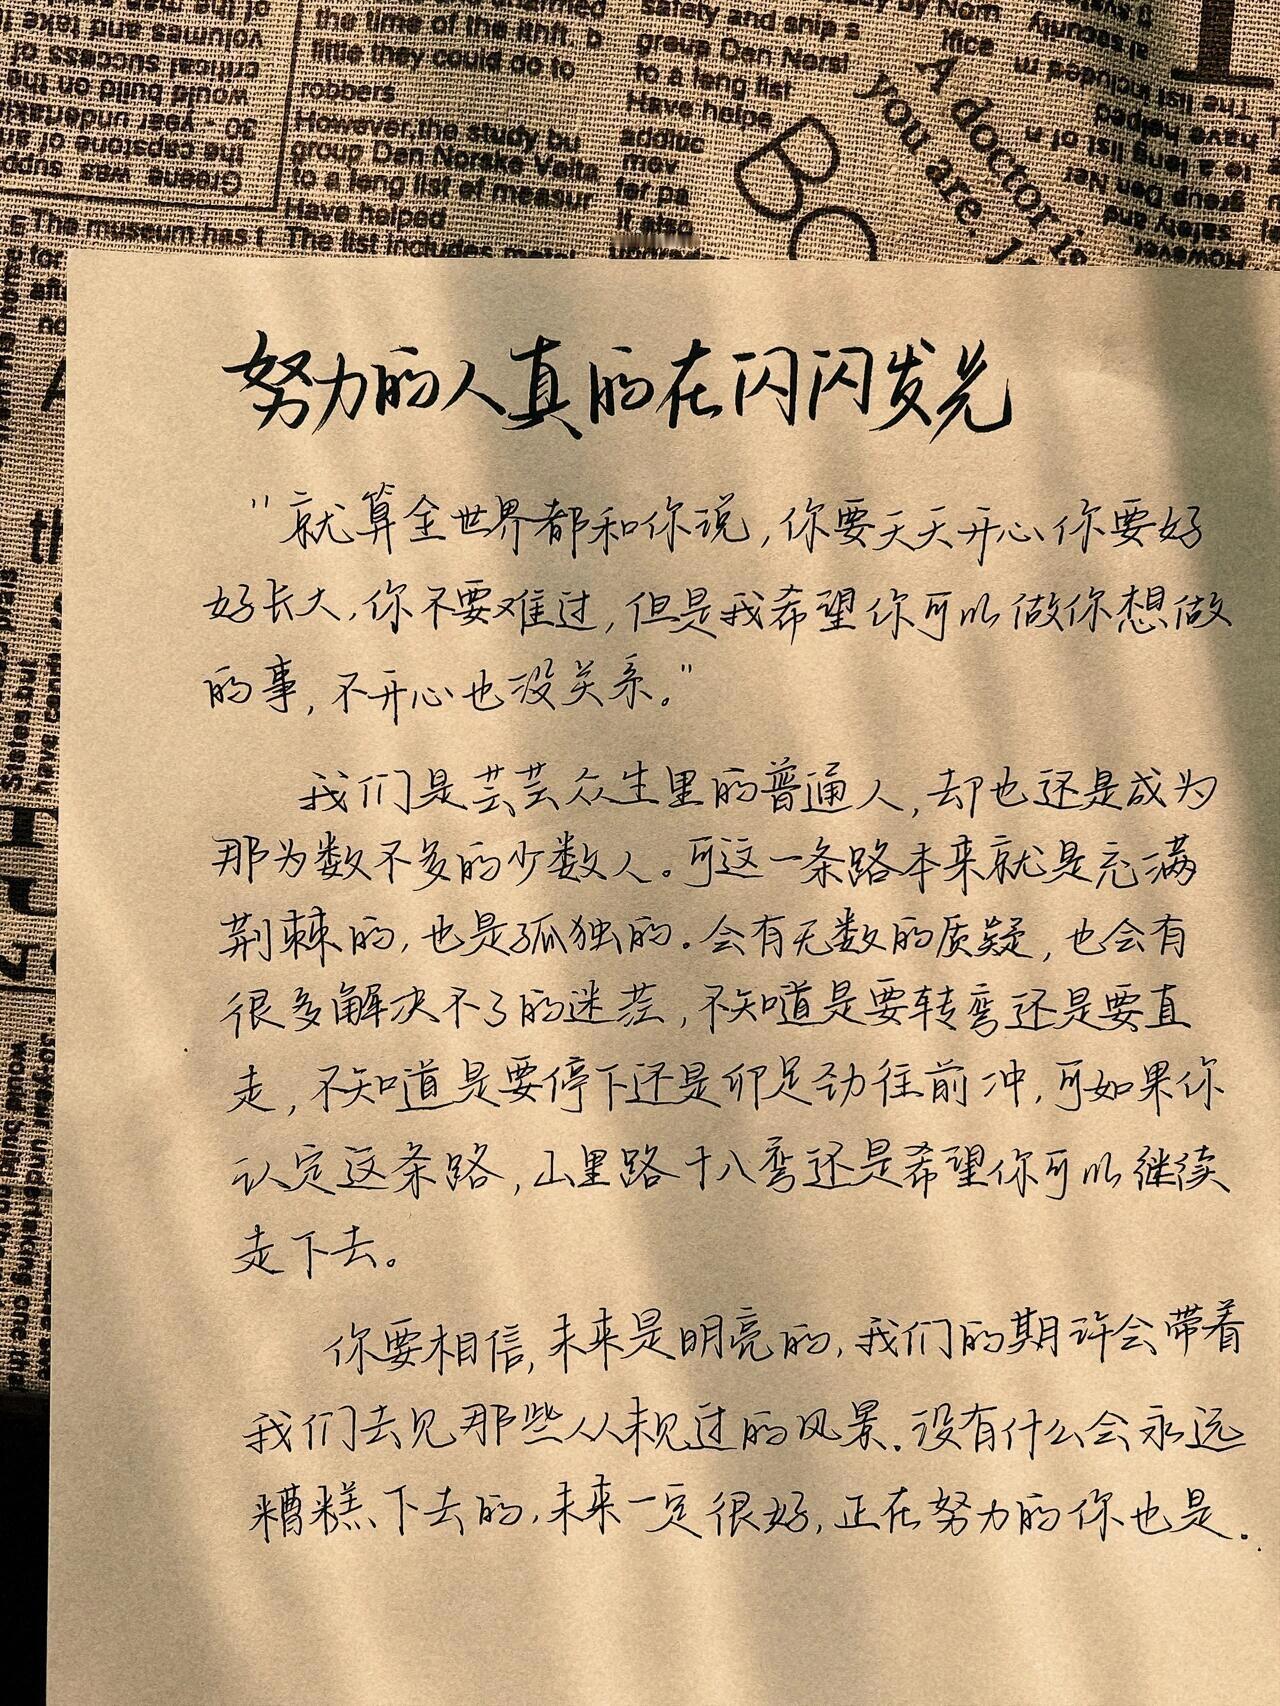 volumes and take
critical success of
would build on the
30 - year undertaki
the capstone of an
Greene was supp
the time of the
little they could do to
robbers
However,the study bu
group Den Norske Veita
to a leng list ef measur
Have helped
The list includes
The museum has t
safety and ship s
group Den Norsl
to a leng list
Have helpe
additic
mov
for pa
it also
BO
A doctor is
you are.
努力的人真的在闪闪发光
"就算全世界都和你说,你要天天开心你要好
好长大,你不要难过,但是我希望你可以做你想做
的事,不开心也没关系。"
我们是芸芸众生里的普通人,却也还是成为
那为数不多的少数人。可这一条路本来就是充满
荆棘的,也是孤独的.会有无数的质疑,也会有
很多解决不了的迷茫,不知道是要转弯还是要直
走,不知道是要停下还是卯足劲往前冲,可如果你
认定这条路,山里路十八弯还是希望你可以继续
走下去。
你要相信,未来是明亮的,我们的期许会带着
我们去见那些从未见过的风景.没有什么会永远
糟糕下去的,未来一定很好,正在努力的你也是.